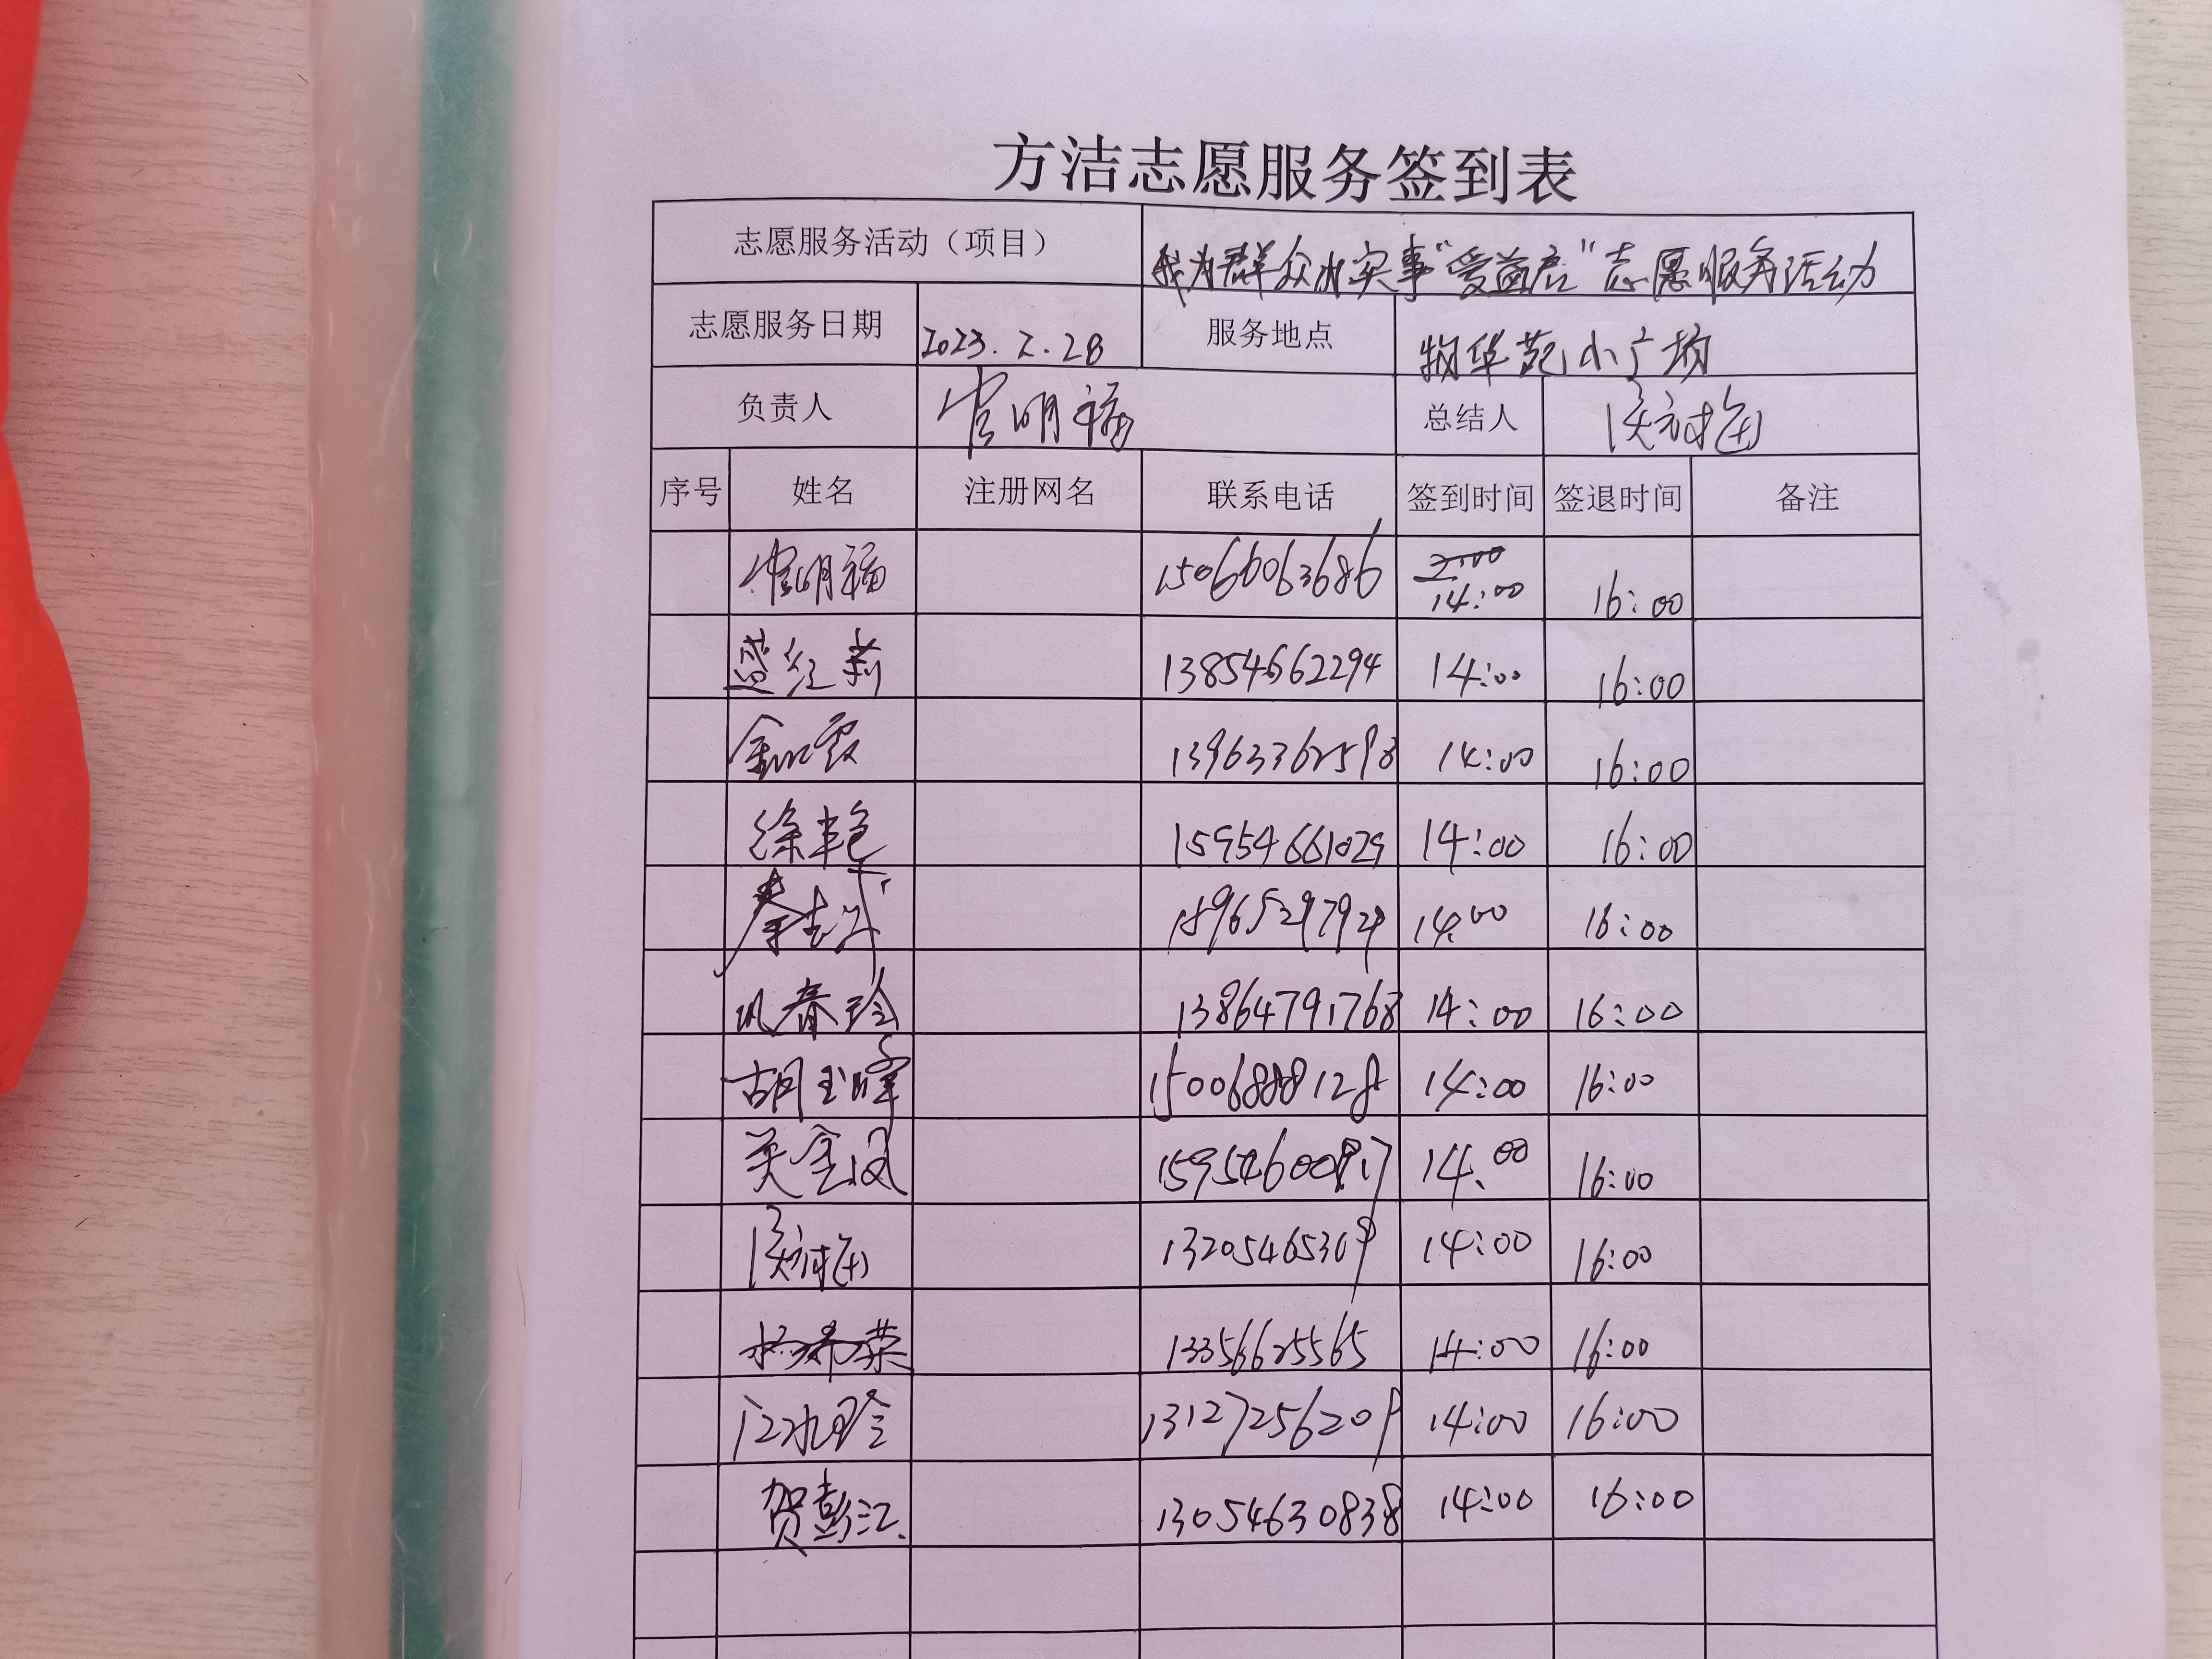 方洁志愿服务签到表
志愿服务活动（项目） 我为群众办实事“爱益启”志愿服务活动
志愿服务日期 2023.2.28 服务地点 物华苑小广场
负责人 官明福 总结人
序号 姓名 注册网名 联系电话 签到时间 签退时间 备注
官明福 15066063686 2:00 14:00 16:00
盛红莉 13854662294 14:00 16:00
13963362598 14:00 16:00
徐艳 15954661029 14:00 16:00
秦志 14:00 16:00
巩春玲 13864791768 14:00 16:00
胡玉晖 15006888128 14:00 16:00
14:00 16:00
13205465309 14:00 16:00
13356625565 14:00 16:00
13127256209 14:00 16:00
贺彭江 13054630838 14:00 16:00